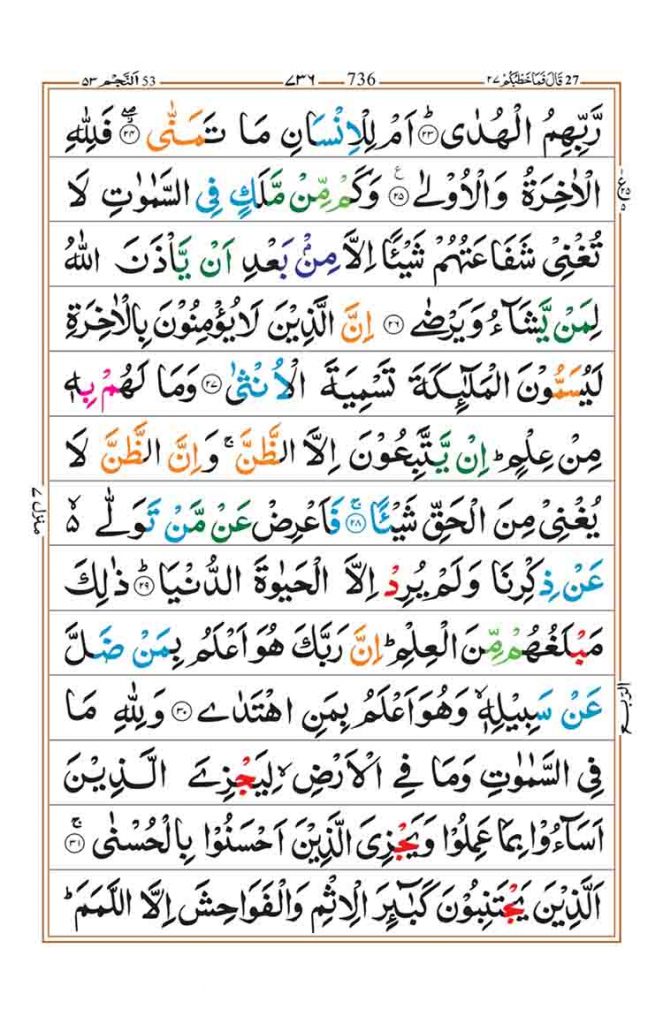 27 قَالَ فَمَا خَطْبُكُمْ ٢٧ 736 ٧٣٦ 53 اَلنَّجْم ٥٣
رَّبِّهِمُ الْهُدٰى ؕ‏ ٢٣ اَمْ لِلْاِنْسَانِ مَا تَمَنّٰى ۖ ٢٤ فَلِلّٰهِ
الْاٰخِرَةُ وَالْاُوْلٰى ٢٥ ع وَكَمْ مِّنْ مَّلَكٍ فِى السَّمٰوٰتِ لَا
ع
٥
تُغْنِىْ شَفَاعَتُهُمْ شَيْـًٔا اِلَّا مِنْۢ بَعْدِ اَنْ يَّاْذَنَ اللّٰهُ
لِمَنْ يَّشَآءُ وَيَرْضٰى ٢٦ اِنَّ الَّذِيْنَ لَا يُؤْمِنُوْنَ بِالْاٰخِرَةِ
لَيُسَمُّوْنَ الْمَلٰٓئِكَةَ تَسْمِيَةَ الْاُنْثٰى ٢٧ وَمَا لَهُمْ بِهٖ
مِنْ عِلْمٍ ؕ اِنْ يَّتَّبِعُوْنَ اِلَّا الظَّنَّ ۚ وَاِنَّ الظَّنَّ لَا
منزل ٧
يُغْنِىْ مِنَ الْحَقِّ شَيْـًٔا ۚ ٢٨ فَاَعْرِضْ عَنْ مَّنْ تَوَلّٰى ۙ
عَنْ ذِكْرِنَا وَلَمْ يُرِدْ اِلَّا الْحَيٰوةَ الدُّنْيَا ؕ ٢٩ ذٰلِكَ
مَبْلَغُهُمْ مِّنَ الْعِلْمِ ؕ اِنَّ رَبَّكَ هُوَ اَعْلَمُ بِمَنْ ضَلَّ
عَنْ سَبِيْلِهٖ ۙ وَهُوَ اَعْلَمُ بِمَنِ اهْتَدٰى ٣٠ وَلِلّٰهِ مَا
الربع
فِى السَّمٰوٰتِ وَمَا فِى الْاَرْضِ ۙ لِيَجْزِىَ الَّذِيْنَ
اَسَآءُوْا بِمَا عَمِلُوْا وَيَجْزِىَ الَّذِيْنَ اَحْسَنُوْا بِالْحُسْنٰى ۚ ٣١
اَلَّذِيْنَ يَجْتَنِبُوْنَ كَبٰٓئِرَ الْاِثْمِ وَالْفَوَاحِشَ اِلَّا اللَّمَمَ ؕ